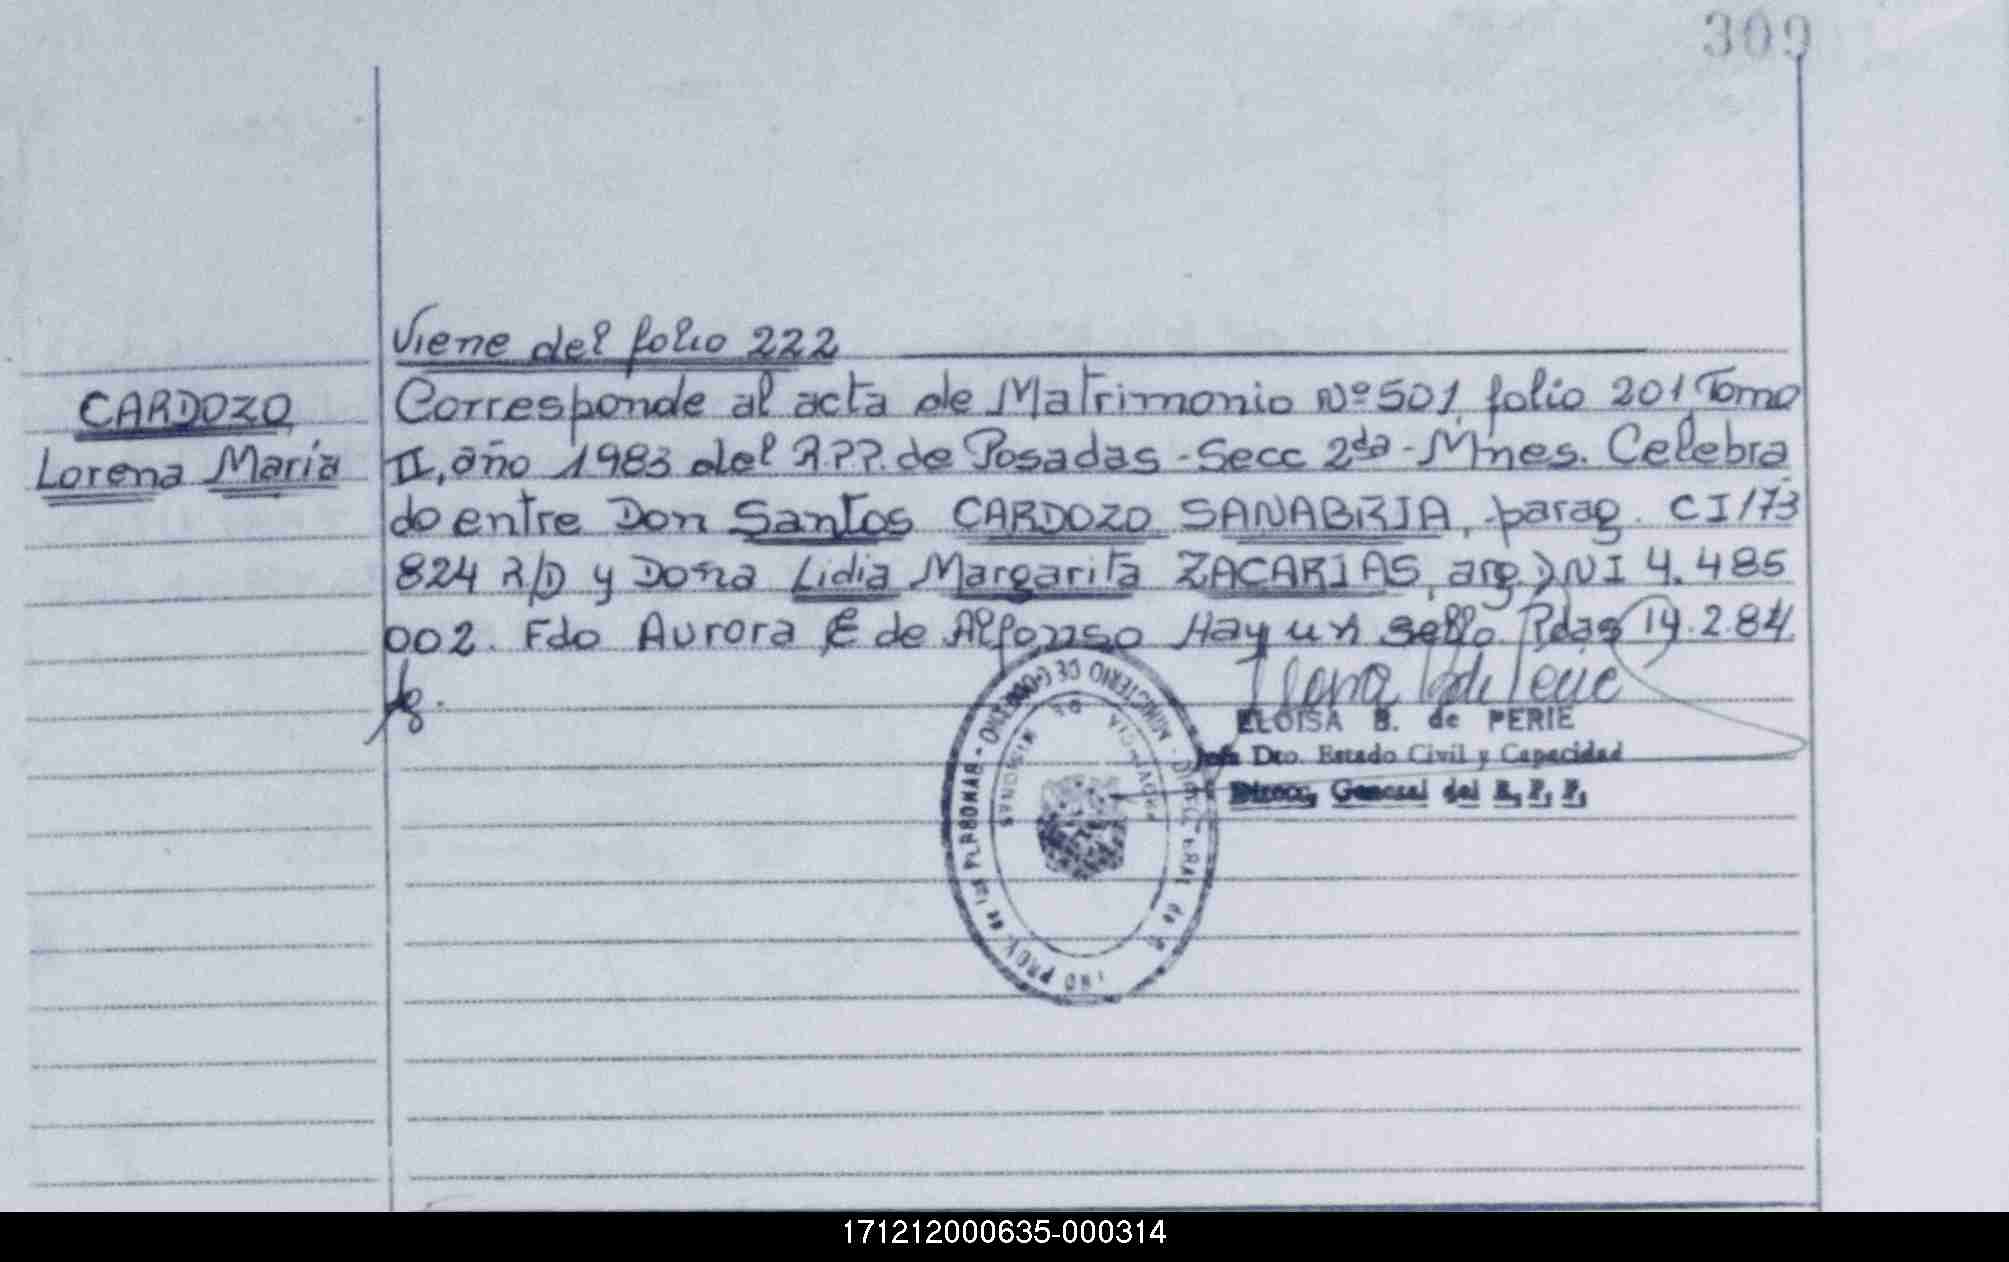 309
Viene del folio 222
CARDOZO
Lorena María
Corresponde al acta de Matrimonio Nº 501 folio 201 Tomo
II, año 1983 del R.P.P. de Posadas - Secc 2da - Mnes. Celebra
do entre Don Santos CARDOZO SANABRIA, parag. CI 173
824 R/D y Doña Lidia Margarita ZACARIAS, arg DNI 4.485
002. Fdo Aurora E de Alfonso Hay un sello Pdas 14.2.84
ELOISA B. de PERIE
Jefa Dto. Estado Civil y Capacidad
Direcc. General del R. P. P.
MINISTERIO DE GOBIERNO - PROV. de las PERSONAS
PROVINCIA DE MISIONES
171212000635-000314